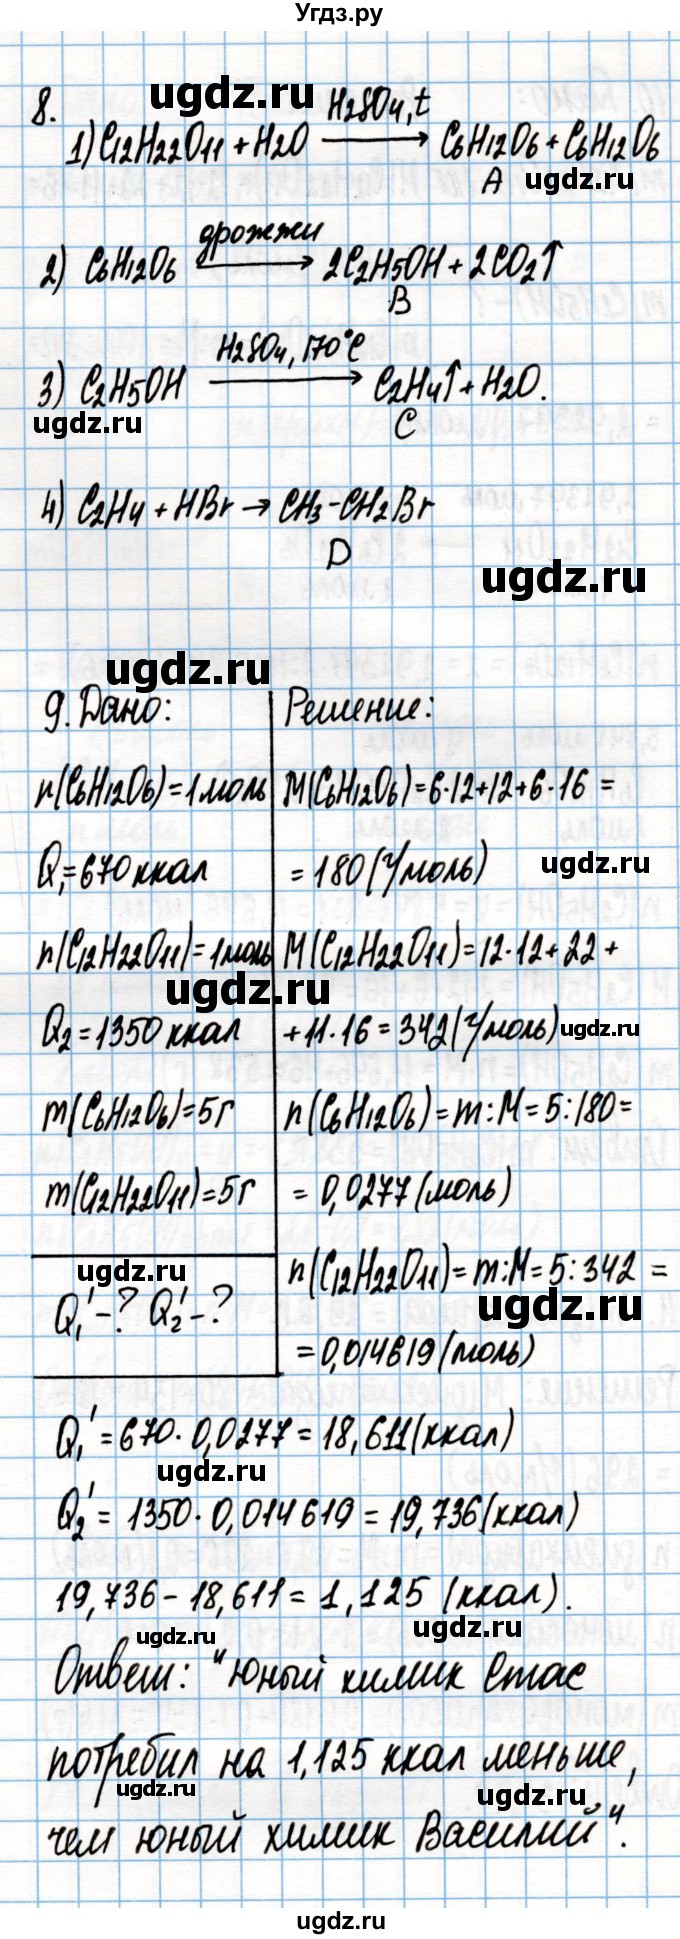 Угдз.ру
8.
ugdz.ru
1) C12H22O11 + H2O H2SO4, t → C6H12O6 + C6H12O6
A
ugdz.ru
2) C6H12O6 дрожжи → 2C2H5OH + 2CO2↑
B
3) C2H5OH H2SO4, 170°C → C2H4↑ + H2O.
ugdz.ru
C
4) C2H4 + HBr → CH3-CH2Br
D
ugdz.ru
ugdz.ru
9. Дано:
n(C6H12O6) = 1 моль
Q1 = 670 ккал
n(C12H22O11) = 1 моль
ugdz.ru
Q2 = 1350 ккал
m(C6H12O6) = 5 г
m(C12H22O11) = 5 г
ugdz.ru
Q1' - ? Q2' - ?
Решение:
M(C6H12O6) = 6·12+12+6·16 =
= 180 (г/моль)
ugdz.ru
M(C12H22O11) = 12·12+22+
+11·16 = 342 (г/моль)
ugdz.ru
n(C6H12O6) = m:M = 5:180 =
= 0,0277 (моль)
n(C12H22O11) = m:M = 5:342 =
ugdz.ru
= 0,014619 (моль)
Q1' = 670 · 0,0277 = 18,611 (ккал)
ugdz.ru
Q2' = 1350 · 0,014619 = 19,736 (ккал)
19,736 - 18,611 = 1,125 (ккал).
ugdz.ru
ugdz.ru
Ответ: "юный химик Стас
потребил на 1,125 ккал меньше,
ugdz.ru
ugdz.ru
чем юный химик Василий".
ugdz.ru